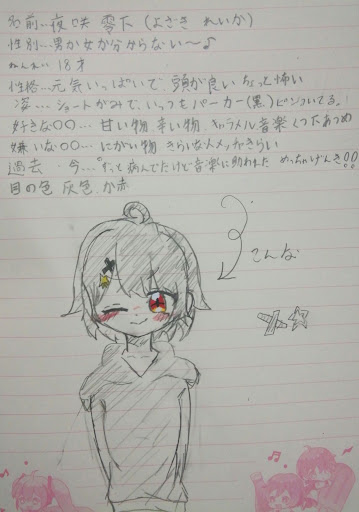 名前…夜咲 零下 (よざき れいか)
性別…男か女か分からない〜♪
ねんれい 18才
性格…元気いっぱいで 頭が良い ちょっと怖い
姿…ショートかみで、いっつもパーカー(黒)ピンついてる。!
好きな〇〇… 甘い物、辛い物、キャラメル 音楽 くつ下あつめ
嫌いな〇〇… にがい物 きらいな人 メッチャきらい
過去 今…ずっと病んでたけど音楽に助けられた めっちゃげんき!!
目の色 灰色 か赤
こんな